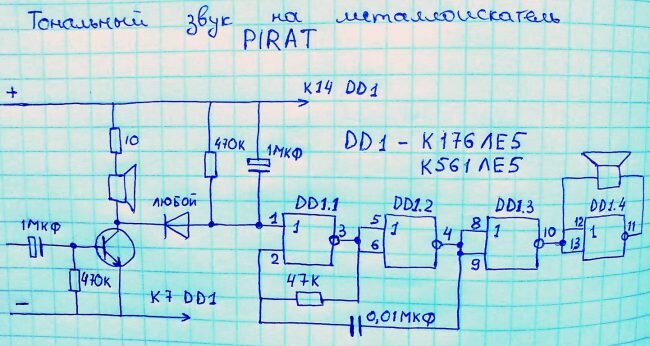 Тональный звук на металлоискатель
PIRAT
+
К14 DD1
10
470К
1МКФ
DD1 - К176ЛЕ5
К561ЛЕ5
ЛЮБОЙ
1МКФ
470К
DD1.1
DD1.2
DD1.3
DD1.4
1
1
3
2
5
1
4
6
8
1
10
9
12
1
11
13
47К
0,01МКФ
−
К7 DD1